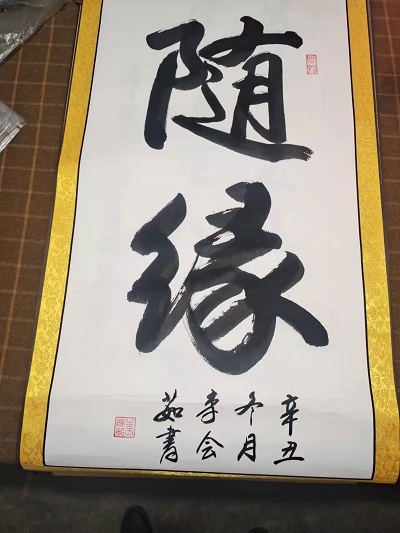 随
缘
辛丑
冬月
李会
茹書